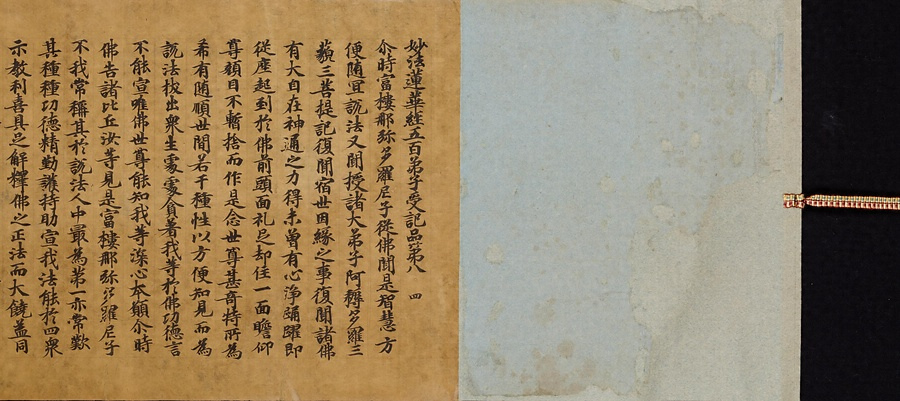 妙法蓮華經五百弟子受記品第八　四
尒時富樓那弥多羅尼子從佛聞是智慧方
便随冝說法又聞授諸大弟子阿耨多羅三
藐三菩提記復聞宿世因緣之事復聞諸佛
有大自在神通之力得未曾有心淨踊躍即
從座起到於佛前頭面礼足却住一面瞻仰
尊顏目不暫捨而作是念世尊甚奇特所為
希有随順世間若干種性以方便知見而為
說法拔出衆生處處貪著我等於佛功德言
不能宣唯佛世尊能知我等深心本願尒時
佛告諸比丘汝等見是富樓那弥多羅尼子
不我常稱其於說法人中最為第一亦常歎
其種種功德精勤護持助宣我法能於四衆
示教利喜具足解釋佛之正法而大饒益同